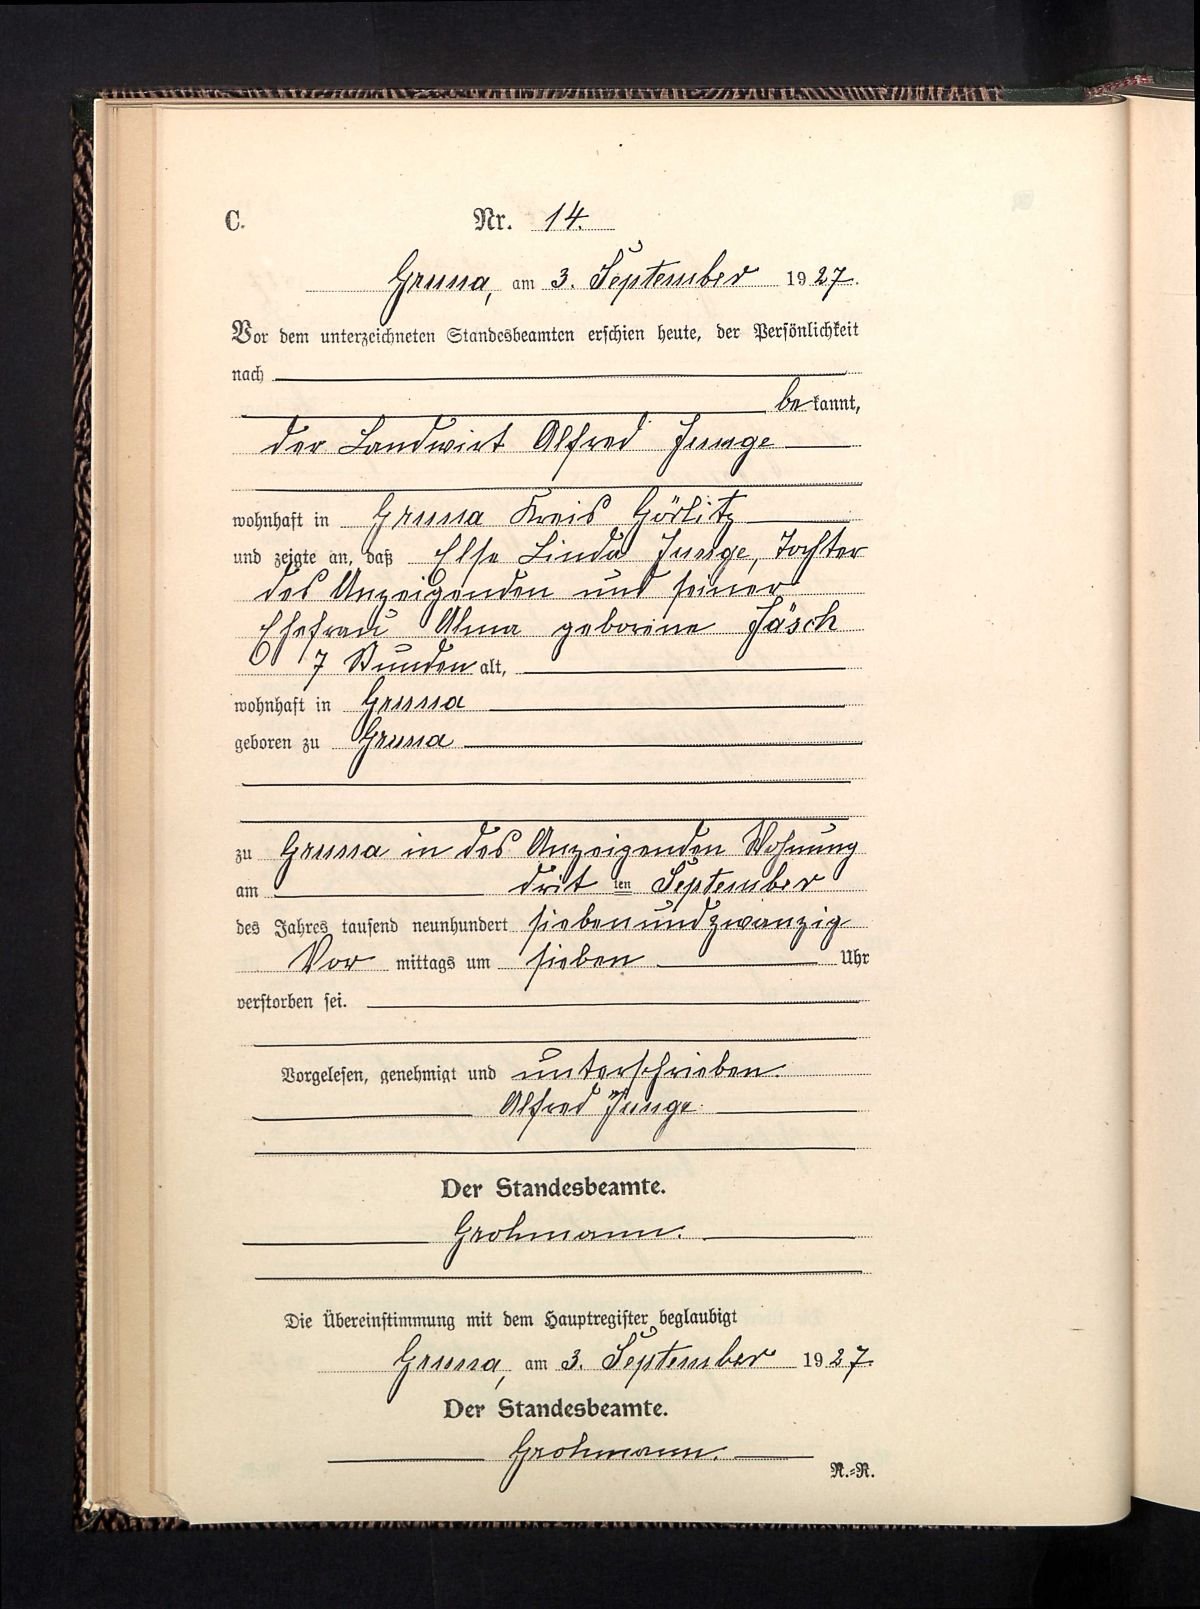 C.
Nr. 14.
Gruna, am 3. September 1927.
Vor dem unterzeichneten Standesbeamten erschien heute, der Persönlichkeit
nach
bekannt,
der Landwirt Alfred Junge
wohnhaft in Gruna Kreis Görlitz
und zeigte an, daß Else Linda Junge, Tochter
des Anzeigenden und seiner
Ehefrau Alma geborene Jäsch
7 Stunden alt,
wohnhaft in Gruna
geboren zu Gruna
zu Gruna in des Anzeigenden Wohnung
am dritten September
des Jahres tausend neunhundert siebenundzwanzig
Vor mittags um sieben Uhr
verstorben sei.
Vorgelesen, genehmigt und unterschrieben.
Alfred Junge.
Der Standesbeamte.
Grohmann.
Die Übereinstimmung mit dem Hauptregister beglaubigt
Gruna, am 3. September 1927.
Der Standesbeamte.
Grohmann.
N.-R.